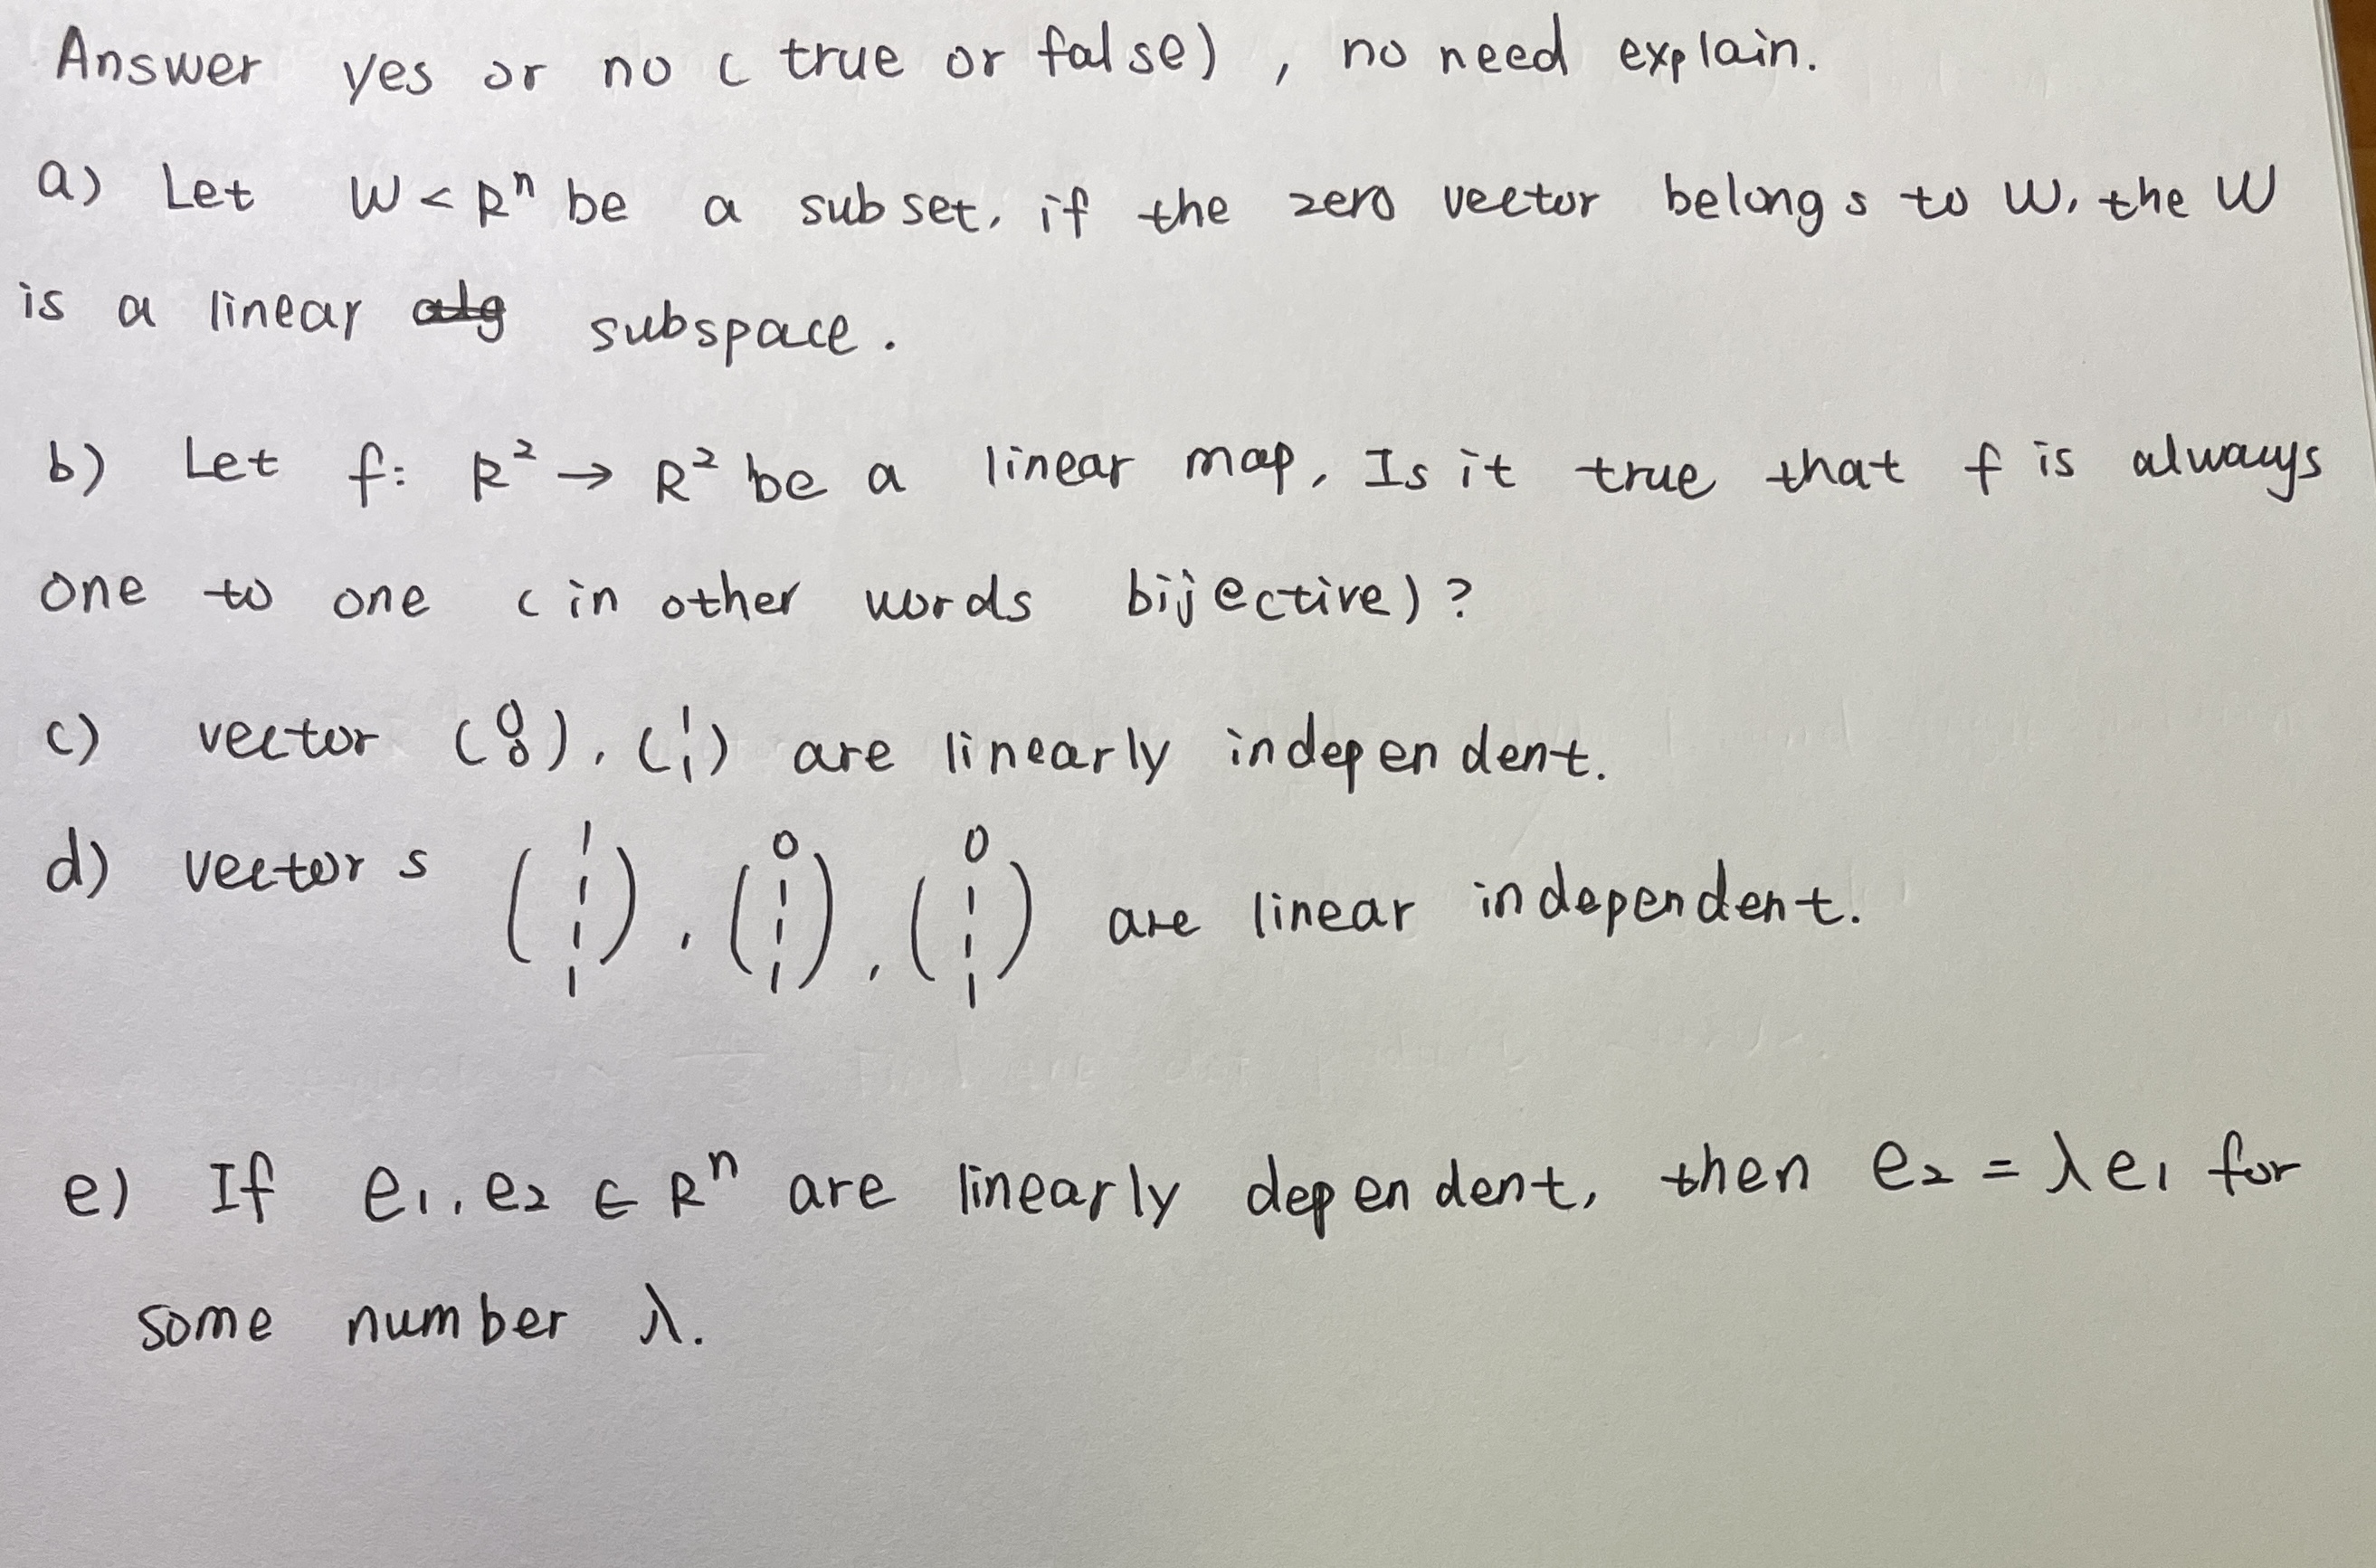 Answer yes or no ( true or false) , no need explain.
a) Let W < Rⁿ be a subset, if the zero vector belongs to W, the W
is a linear subspace.
b) Let f: R² → R² be a linear map, Is it true that f is always
one to one (in other words bijective) ?
c) vector (0 0), (1 1) are linearly independent.
d) vectors (1 1 1 1), (0 1 1 1), (0 1 1 1) are linear independent.
e) If e₁, e₂ ∈ Rⁿ are linearly dependent, then e₂ = λe₁ for
some number λ.